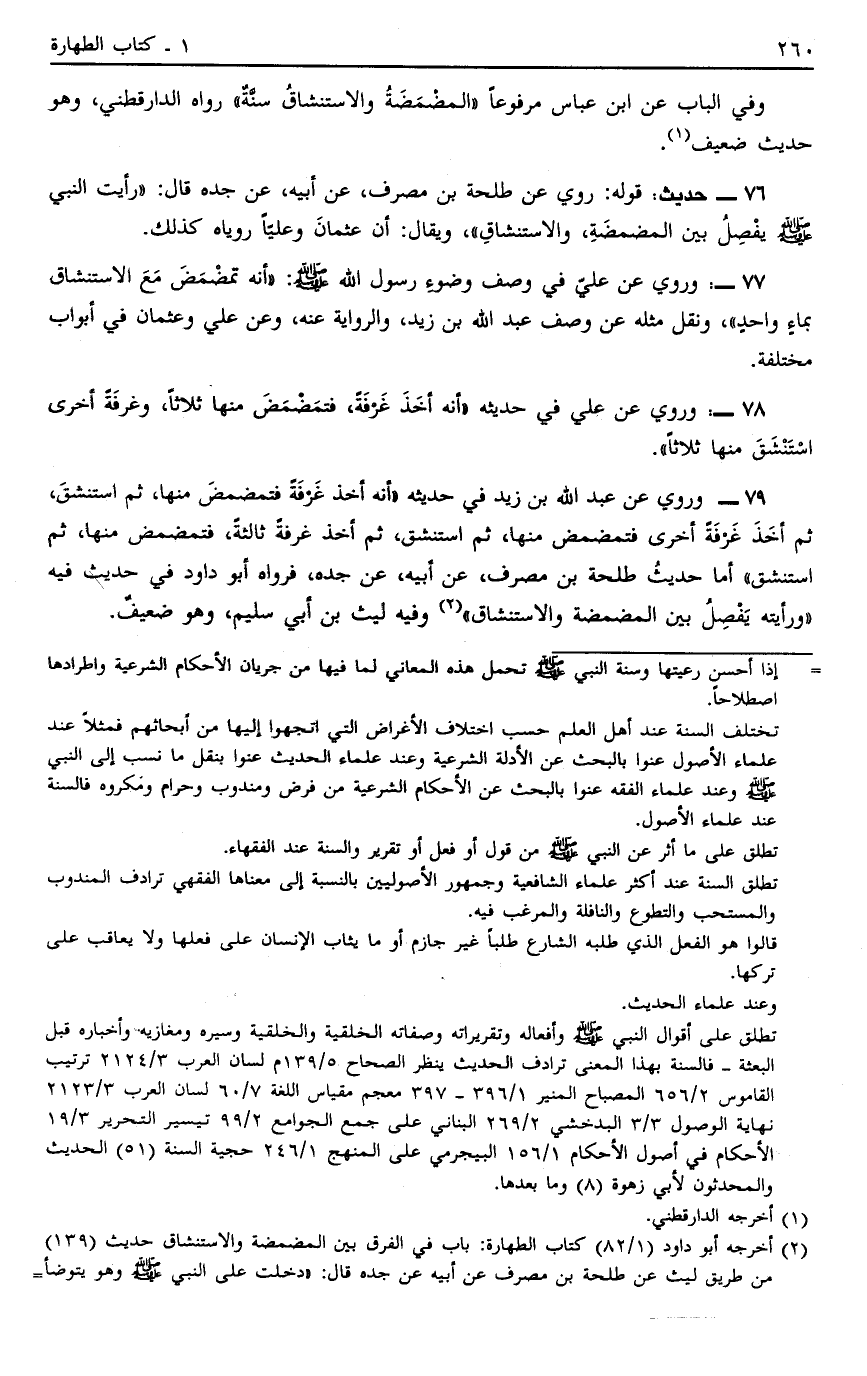 ٢٦٠
١ - كتاب الطهارة
وفي الباب عن ابن عباس مرفوعاً «المضْمَضَةُ والاستنشاقُ سنَّةٌ» رواه الدارقطني، وهو
حديث ضعيف(١).
٧٦ — حديث: قوله: روي عن طلحة بن مصرف، عن أبيه، عن جده قال: «رأيت النبي
ﷺ يفْصِلُ بين المضمضَةِ، والاستنشاقِ»، ويقال: أن عثمانَ وعليّاً روياه كذلك.
٧٧ —: وروي عن عليّ في وصف وضوءِ رسول الله ﷺ: «أنه تمضْمَضَ مَعَ الاستنشاق
بماءٍ واحدٍ»، ونقل مثله عن وصف عبد الله بن زيد، والرواية عنه، وعن علي وعثمان في أبواب
مختلفة.
٧٨ —: وروي عن علي في حديثه «أنه أخَذَ غَرْفَةً، فتمَضْمَضَ منها ثلاثاً، وغرفَةً أخرى
اسْتَنْشَقَ منها ثلاثاً».
٧٩ — وروي عن عبد الله بن زيد في حديثه «أنه أخذ غَرْفَةً فتمضمضَ منها، ثم استنشقَ،
ثم أخَذَ غَرْفَةً أخرى فتمضمض منها، ثم استنشق، ثم أخذ غرفةً ثالثةً، فتمضمض منها، ثم
استنشق» أما حديثُ طلحة بن مصرف، عن أبيه، عن جده، فرواه أبو داود في حديث فيه
«ورأيته يَفْصِلُ بين المضمضة والاستنشاق»(٢) وفيه ليث بن أبي سليم، وهو ضعيفٌ.
= إذا أحسن رعيتها وسنة النبي ﷺ تحمل هذه المعاني لما فيها من جريان الأحكام الشرعية واطرادها
اصطلاحاً.
تختلف السنة عند أهل العلم حسب اختلاف الأغراض التي اتجهوا إليها من أبحاثهم فمثلاً عند
علماء الأصول عنوا بالبحث عن الأدلة الشرعية وعند علماء الحديث عنوا بنقل ما نسب إلى النبي
ﷺ وعند علماء الفقه عنوا بالبحث عن الأحكام الشرعية من فرض ومندوب وحرام ومكروه فالسنة
عند علماء الأصول.
تطلق على ما أثر عن النبي ﷺ من قول أو فعل أو تقرير والسنة عند الفقهاء.
تطلق السنة عند أكثر علماء الشافعية وجمهور الأصوليين بالنسبة إلى معناها الفقهي ترادف المندوب
والمستحب والتطوع والنافلة والمرغب فيه.
قالوا هو الفعل الذي طلبه الشارع طلباً غير جازم أو ما يثاب الإنسان على فعلها ولا يعاقب على
تركها.
وعند علماء الحديث.
تطلق على أقوال النبي ﷺ وأفعاله وتقريراته وصفاته الخلقية والخلقية وسيره ومغازيه وأخباره قبل
البعثة - فالسنة بهذا المعنى ترادف الحديث ينظر الصحاح ١٣٩/٥م لسان العرب ٢١٢٤/٣ ترتيب
القاموس ٦٥٦/٢ المصباح المنير ٣٩٦/١ - ٣٩٧ معجم مقياس اللغة ٦٠/٧ لسان العرب ٢١٢٣/٣
نهاية الوصول ٣/٣ البدخشي ٢٦٩/٢ البناني على جمع الجوامع ٩٩/٢ تيسير التحرير ١٩/٣
الأحكام في أصول الأحكام ١٥٦/١ البيجرمي على المنهج ٢٤٦/١ حجية السنة (٥١) الحديث
والمحدثون لأبي زهوة (٨) وما بعدها.
(١) أخرجه الدارقطني.
(٢) أخرجه أبو داود (٨٢/١) كتاب الطهارة: باب في الفرق بين المضمضة والاستنشاق حديث (١٣٩)
من طريق ليث عن طلحة بن مصرف عن أبيه عن جده قال: «دخلت على النبي ﷺ وهو يتوضأ=